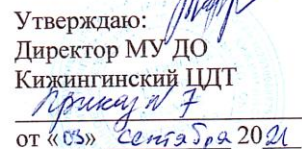 Утверждаю:
Директор МУ ДО
Кижингинский ЦДТ
Приказ № 7
от «03» сентября 2021